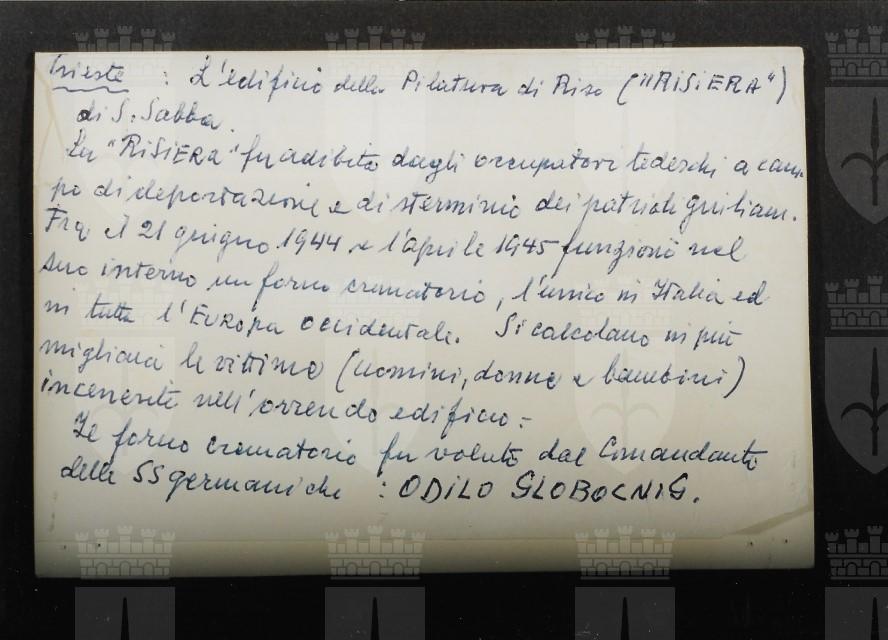 Trieste : L'edificio della Pilatura di Riso ("RiSiERA")
di S. Sabba.
La "RiSiERA" fu adibita dagli occupatori tedeschi a cam-
po di deportazione e di sterminio dei patrioti giuliani.
Fra il 21 giugno 1944 e l'aprile 1945 funzionò nel
suo interno un forno crematorio, l'unico in Italia ed
in tutta l'Europa occidentale. Si calcolano in più
migliaia le vittime (uomini, donne e bambini)
incenerite nell'orrendo edificio:-
Il forno crematorio fu voluto dal Comandante
delle SS germaniche : ODiLO GLOBOCNiG.